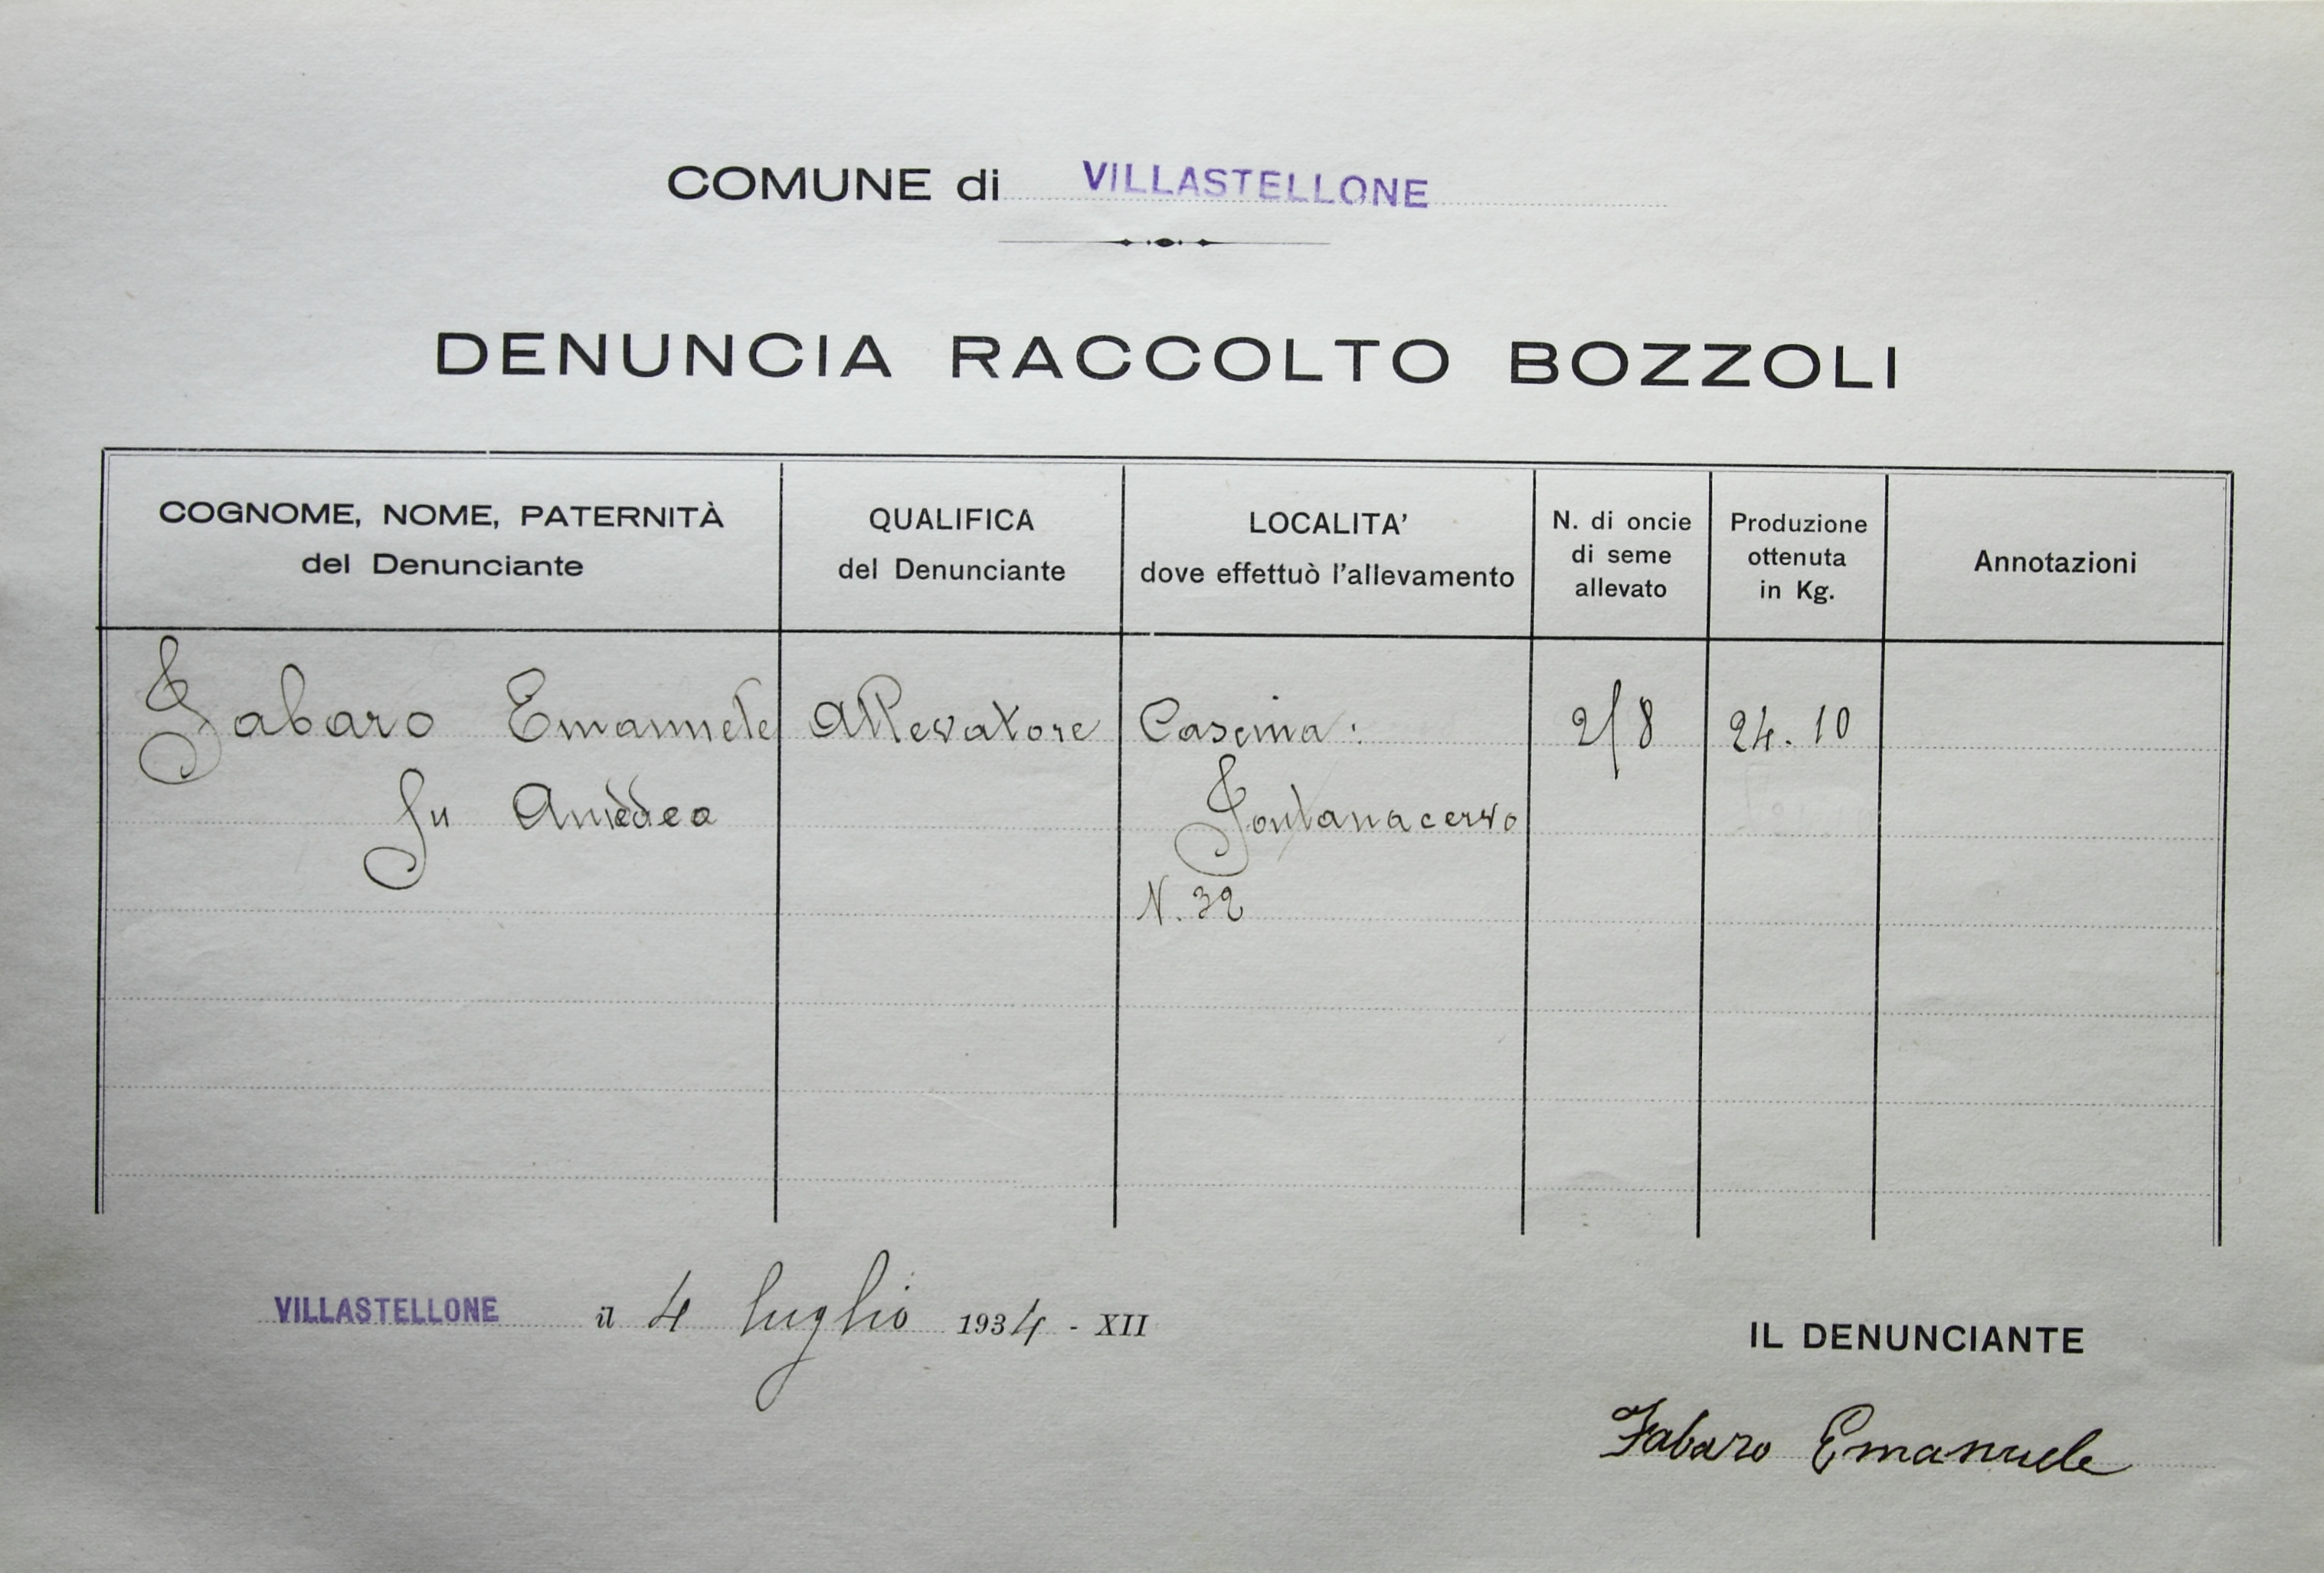 COMUNE di VILLASTELLONE
DENUNCIA RACCOLTO BOZZOLI
COGNOME, NOME, PATERNITÀ
del Denunciante
QUALIFICA
del Denunciante
LOCALITA'
dove effettuò l'allevamento
N. di oncie
di seme
allevato
Produzione
ottenuta
in Kg.
Annotazioni
Fabaro Emanuele Allevatore Cascina: 2/8 24.10
fu Amedeo Fontanacervo
N. 32
VILLASTELLONE il 4 luglio 1934 - XII
IL DENUNCIANTE
Fabaro Emanuele